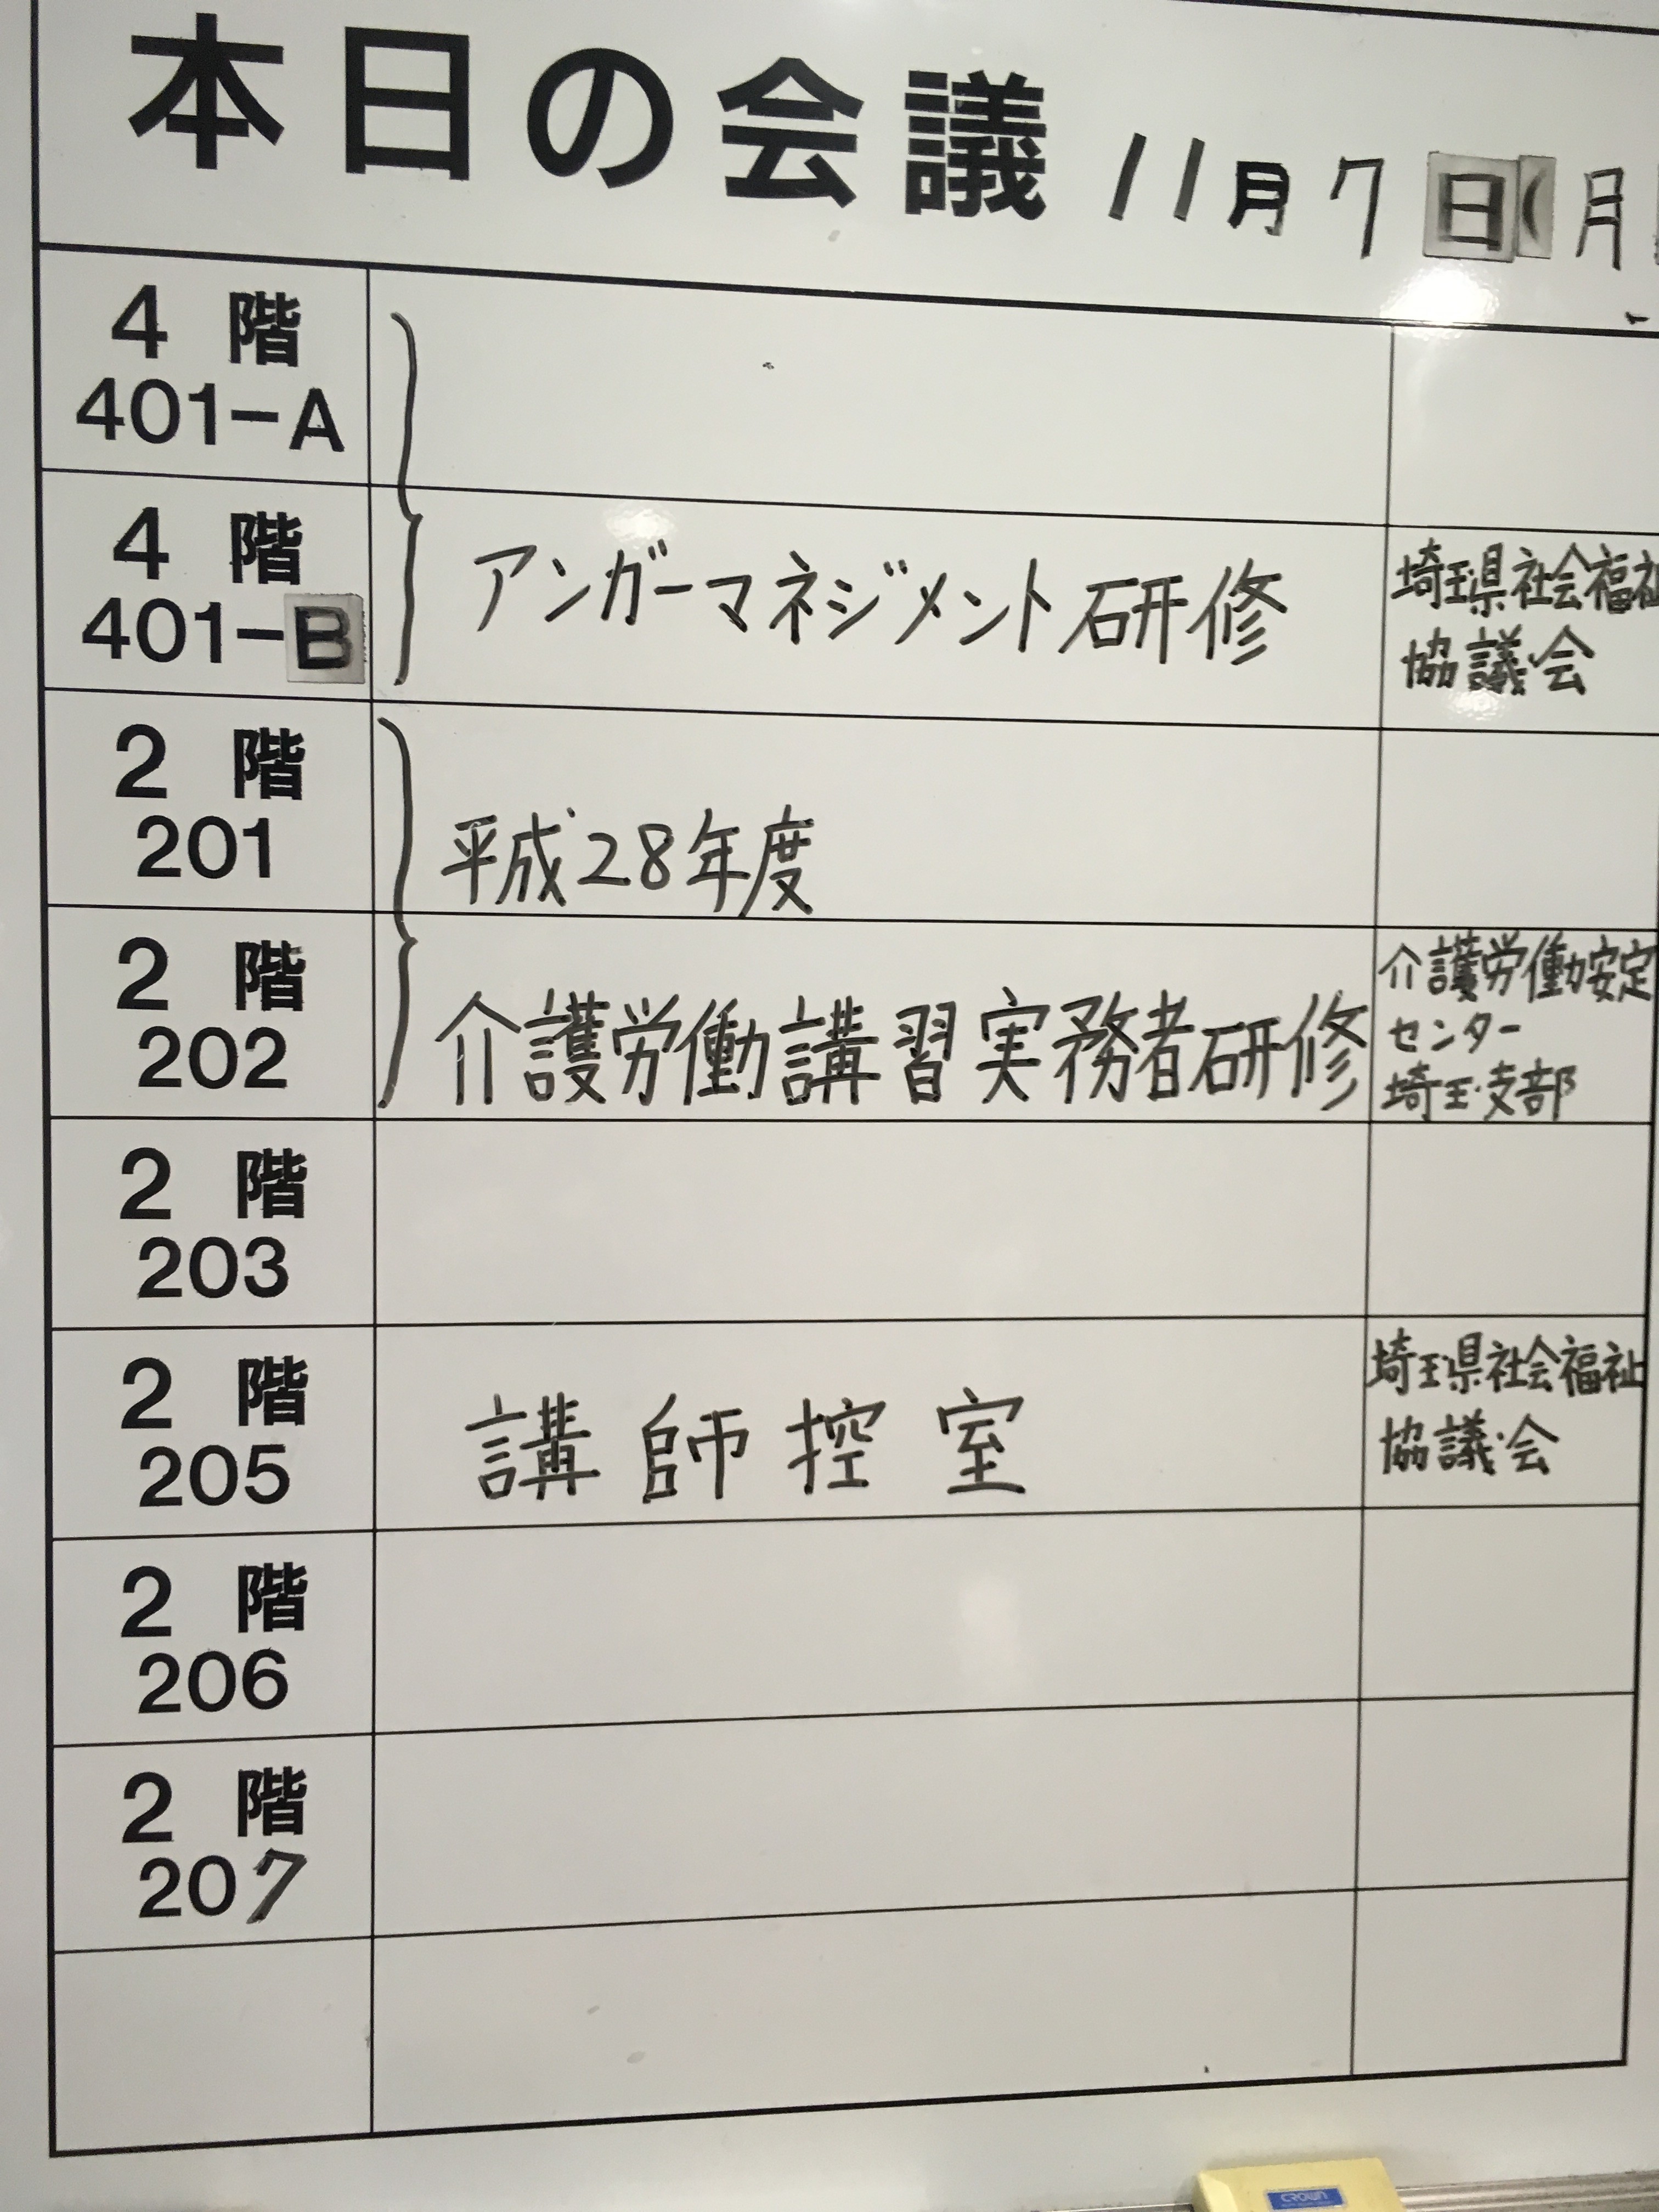 本日の会議 11月7日(月
4階
401-A
4階
401-B
アンガーマネジメント研修
埼玉県社会福祉
協議会
2階
201
平成28年度
2階
202
介護労働講習実務者研修
介護労働安定
センター
埼玉支部
2階
203
2階
205
講師控室
埼玉県社会福祉
協議会
2階
206
2階
207
CROWN